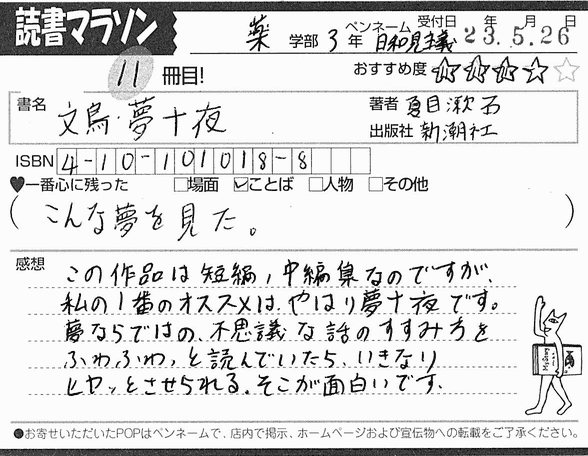 読書マラソン
薬 学部 3 年 ペンネーム 日和見主義 受付日 年 月 日 23.5.26
11 冊目! おすすめ度 ★★★★☆
書名 文鳥・夢十夜 著者 夏目漱石
出版社 新潮社
ISBN 4-10-101018-8
♥一番心に残った □場面 ☑ことば □人物 □その他
(こんな夢を見た。)
感想 この作品は短編,中編集なのですが、
私の1番のオススメは、やはり夢十夜です。
夢ならではの、不思議な話のすすみ方を
ふわふわっと読んでいたら、いきなり
ヒヤッとさせられる。そこが面白いです。
●お寄せいただいたPOPはペンネームで、店内で掲示、ホームページおよび宣伝物への転載をご了承ください。